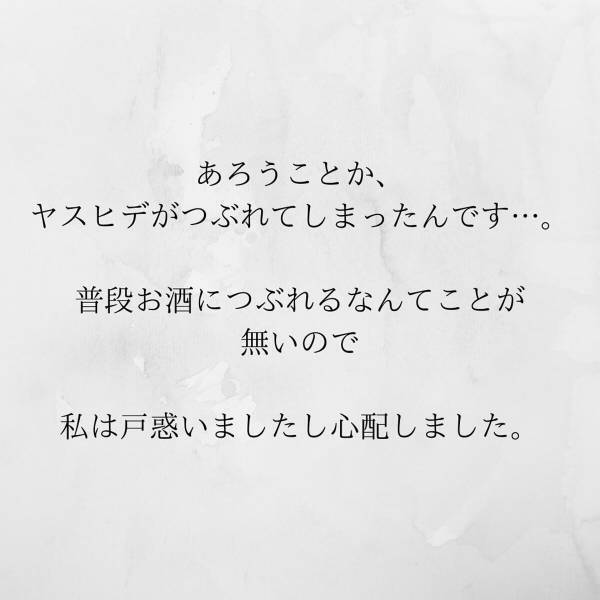 あろうことか、
ヤスヒデがつぶれてしまったんです…。
普段お酒につぶれるなんてことが
無いので
私は戸惑いましたし心配しました。